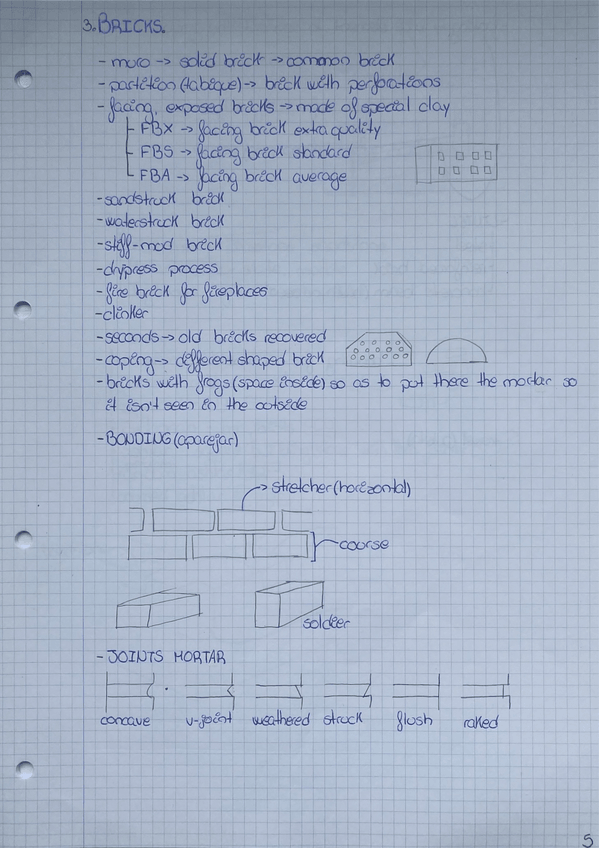 3. BRICKS.
- muro -> solid brick -> common brick
- partition (tabique) -> brick with perforations
- facing, exposed bricks -> made of special clay
FBX -> facing brick extra quality
FBS -> facing brick standard
FBA -> facing brick average
- sandstruck brick
- waterstruck brick
- stiff-mod brick
- drypress process
- fire brick for fireplaces
- clinker
- seconds -> old bricks recovered
- coping -> different shaped brick
- bricks with frogs (space inside) so as to put there the mortar so
it isn't seen in the outside
- BONDING (aparejar)
-> stretcher (horizontal)
course
soldeer
- JOINTS MORTAR
concave v-joint weathered struck flush raked
5